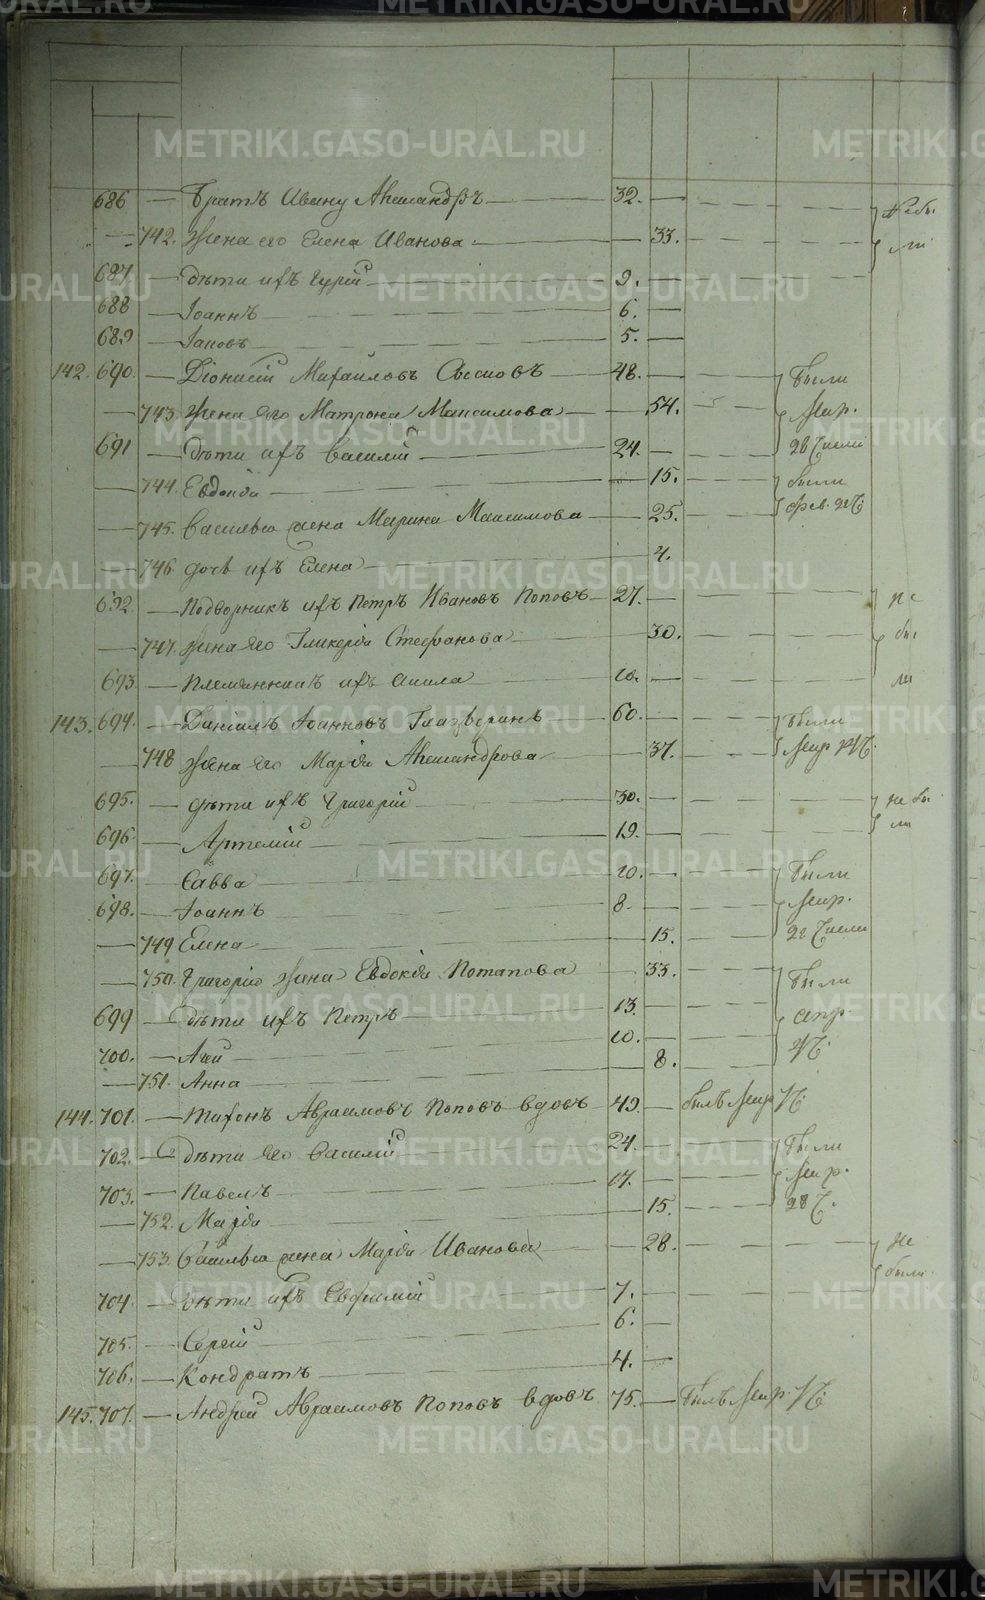 686 — Братъ Ивану Александръ — 32. —
— 742. Жена его Елена Иванова — 33. не бы
ли
687 — дѣти ихъ Гурій — 9.
688 — Іоаннъ — 6. —
689 — Іаковъ — 5. —
142. 690. — Діонисій Михайловъ — 48. — были
— 743. Жена его Матрона Максимова — 54. мар.
691 — дѣти ихъ Василій — 24. — 28 числа
— 744. Евдокія — 15. были
— 745. Василья жена Марина Максимова — 25. фев.
— 746 дочь ихъ Елена — 4.
692 — Подворникъ ихъ Петръ Ивановъ Поповъ — 27. — не
— 747. жена его Гликерія Стефанова — 30. бы
693 — Племянникъ ихъ — 10. — ли
143. 694. — Даніилъ Іоанновъ — 60. — были
— 748 Жена его Марія Александрова — 37. мар
695. — дѣти ихъ Григорій — 30. — не бы
696. — Артемій — 19. — ли
697. — Савва — 10. — были
698. — Іоаннъ — 8. — мар.
— 749 Елена — 15. числа
— 750. Григорію жена Евдокія Потапова — 33. были
699 — дѣти ихъ Петръ — 13. — апр.
700. — — 10. —
— 751. Анна — 8.
144. 701. — Тихонъ Авраамовъ Поповъ вдовъ — 49. — былъ мар
702. — дѣти его Василій — 24. — были
703. — Павелъ — 17. — мар.
— 752. Марія — 15. 28 Ч.
— 753. Василья жена Марія Иванова — 28. не
были
704. — дѣти ихъ Евфимій — 7. —
705. — Сергій — 6. —
706. — Кондратъ — 4. —
145. 707. — Андрей Авраамовъ Поповъ вдовъ 75. — былъ мар.